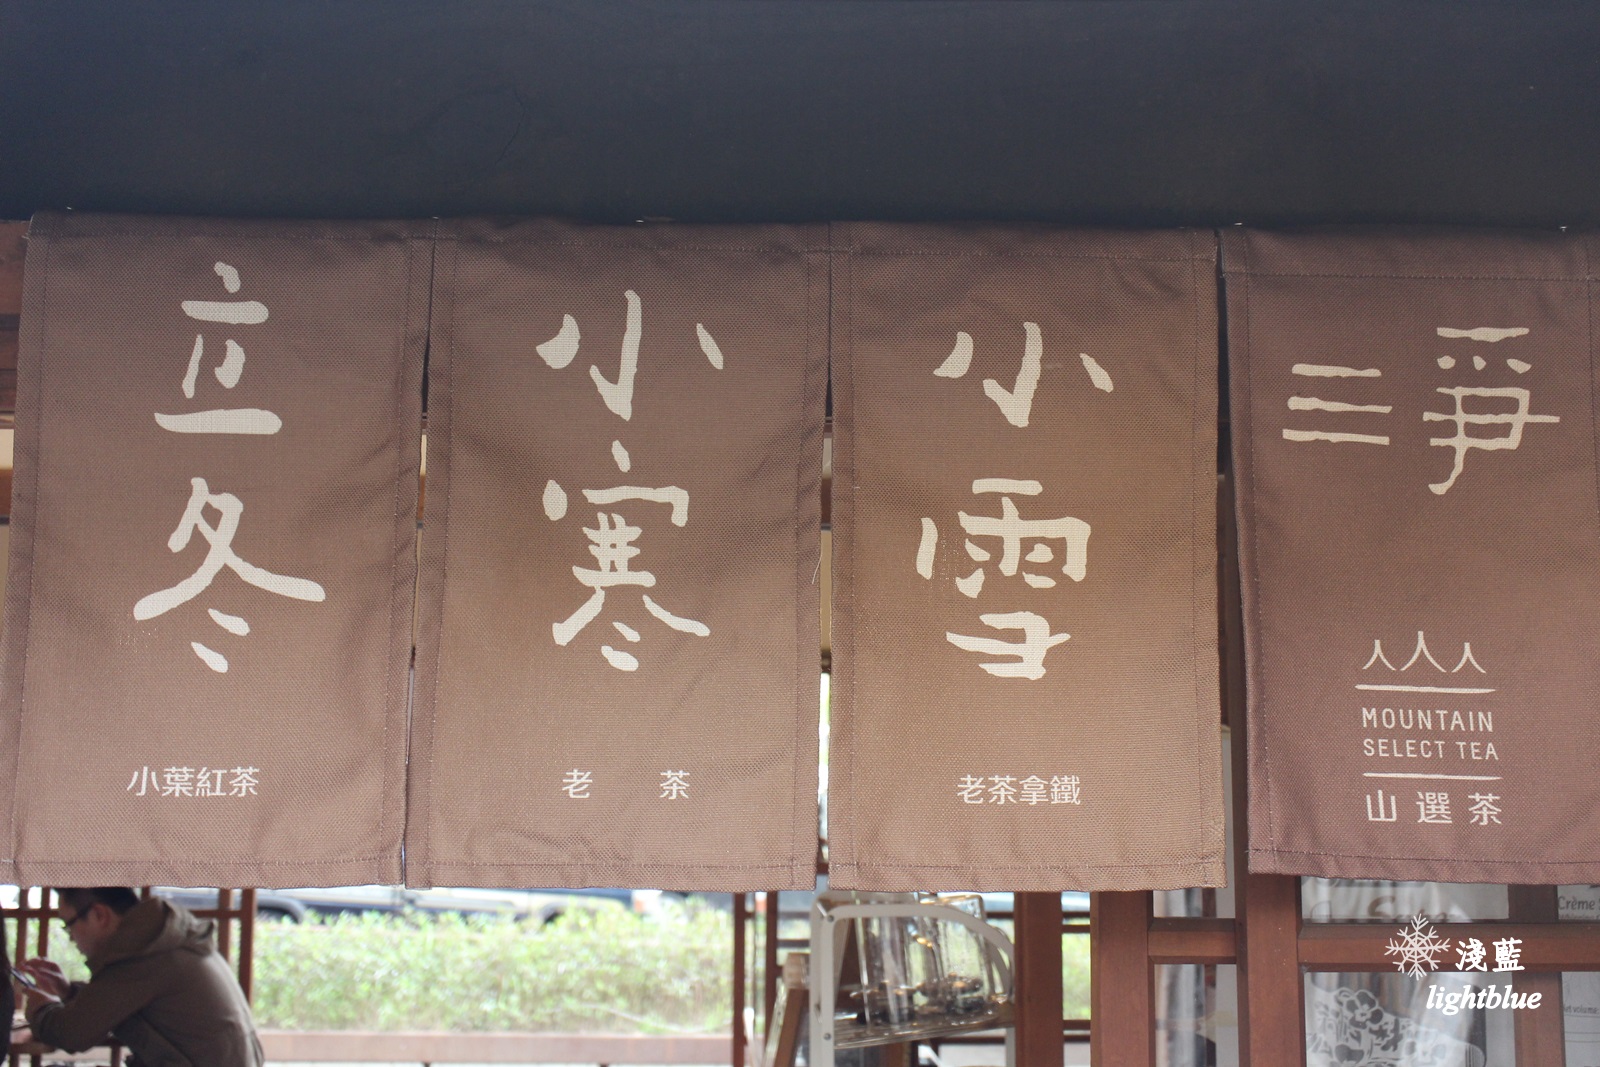 立冬
小葉紅茶
小寒
老茶
小雪
老茶拿鐵
三
MOUNTAIN
SELECT TEA
山選茶
Crème
淺藍
lightblue